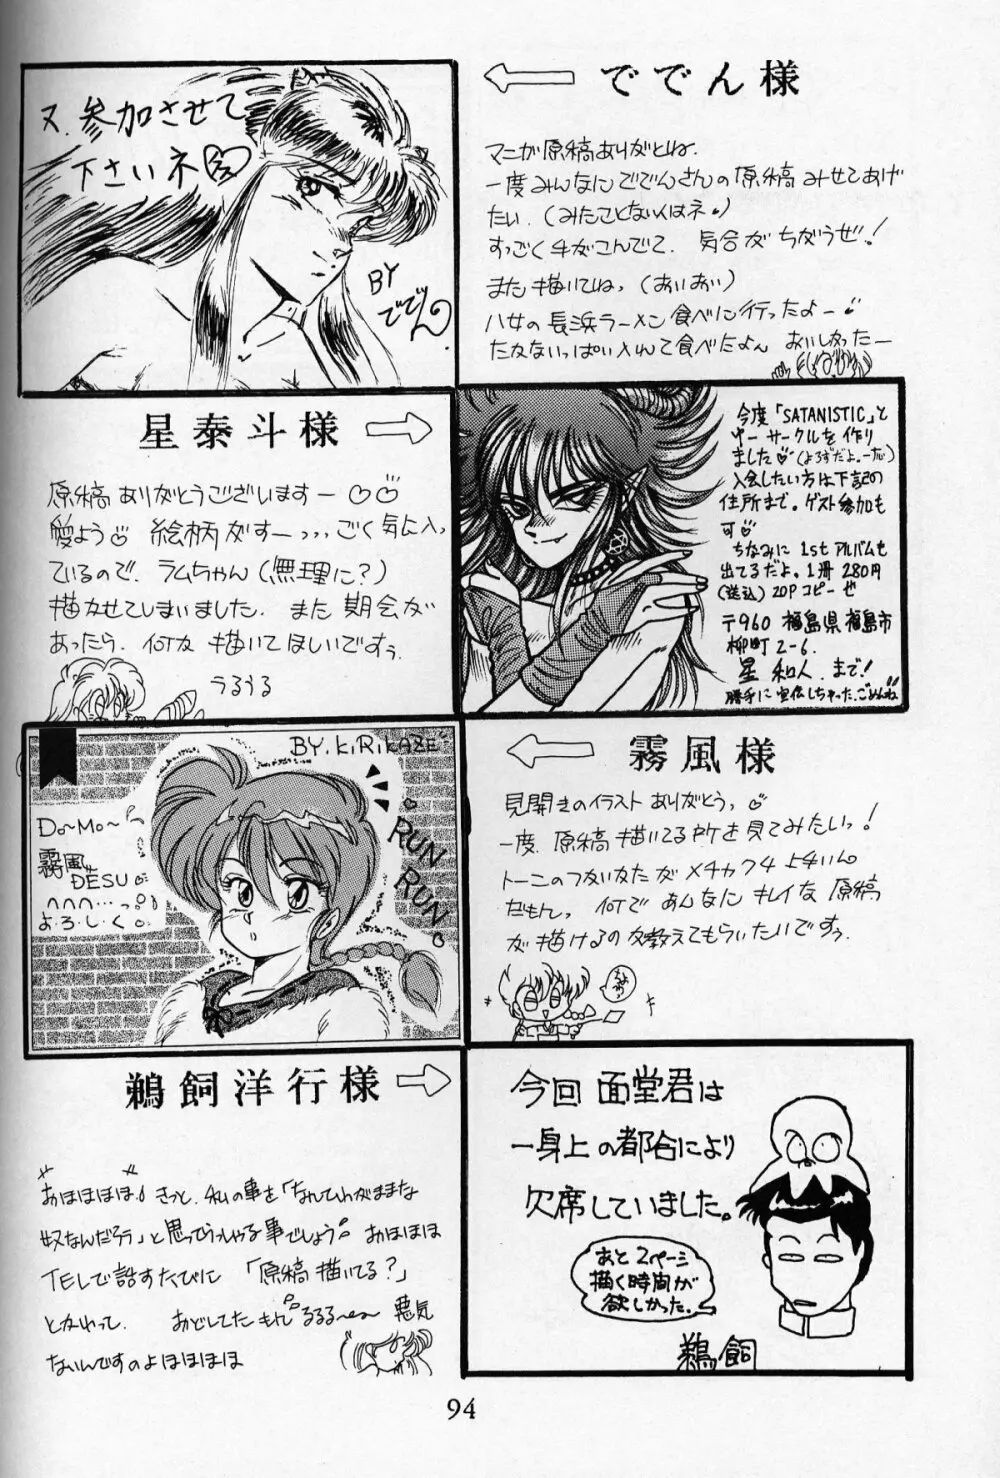 又.参加させて
下さいネ
BY
ででん。
ででん様
マニが原稿ありがとね.
一度みんなにででんさんの原稿みせてあげ
たい.(みたことない人はネ。)
すっごく手がこんでて.気合がちがうぜ!
また描いてねっ(おいおい)
八女の長浜ラーメン食べに行ったよー
たかないっぱい入れて食べたよん おいしかったー
星泰斗様
原稿ありがとうございますー♡♡
愛よう♡ 絵柄がすーっっごく気に入っ
ているので、ラムちゃん(無理に?)
描かせてしまいました. また期会が
あったら.何か描いてほしいですぅ.
うるうる
今度「SATANISTIC」と
ゆーサークルを作り
ました♡(よろずだよ。一応)
入会したい方は下記の
住所まで。ゲスト参加も
可♡
ちなみに1stアルバムも
出てるだよ。1冊280円
(送込)20Pコピーぜ
〒960 福島県福島市
柳町2-6.
星 和人.まで!
勝手に宣伝しちゃった.ごめんね
BY.KiRiKAZE
Do~Mo~
霧風
DESU
へへへ…っ
よ.ろ.し.く。
RUN
RUN
霧風様
見開きのイラストありがとうっ♡
一度.原稿描いてる所を見てみたいっ!
トーンのつかいかたがメチャウマ上手いん
だもんっ 何であんなにキレイな原稿
が描けるのか教えてもらいたいですぅ.
鵜飼洋行様
おほほほほ! きっと.私の事を「なんてわがままな
奴なんだろう」と思ってらっしゃる事でしょう。おほほほ
TELで話すたびに「原稿描いてる?」
とかわって. おどしてたもんで。るるる~ 悪気
ないんですのよほほほほ
今回 面堂君は
一身上の都合により
欠席していました。
あと2ページ
描く時間が
欲しかった.
鵜飼
94